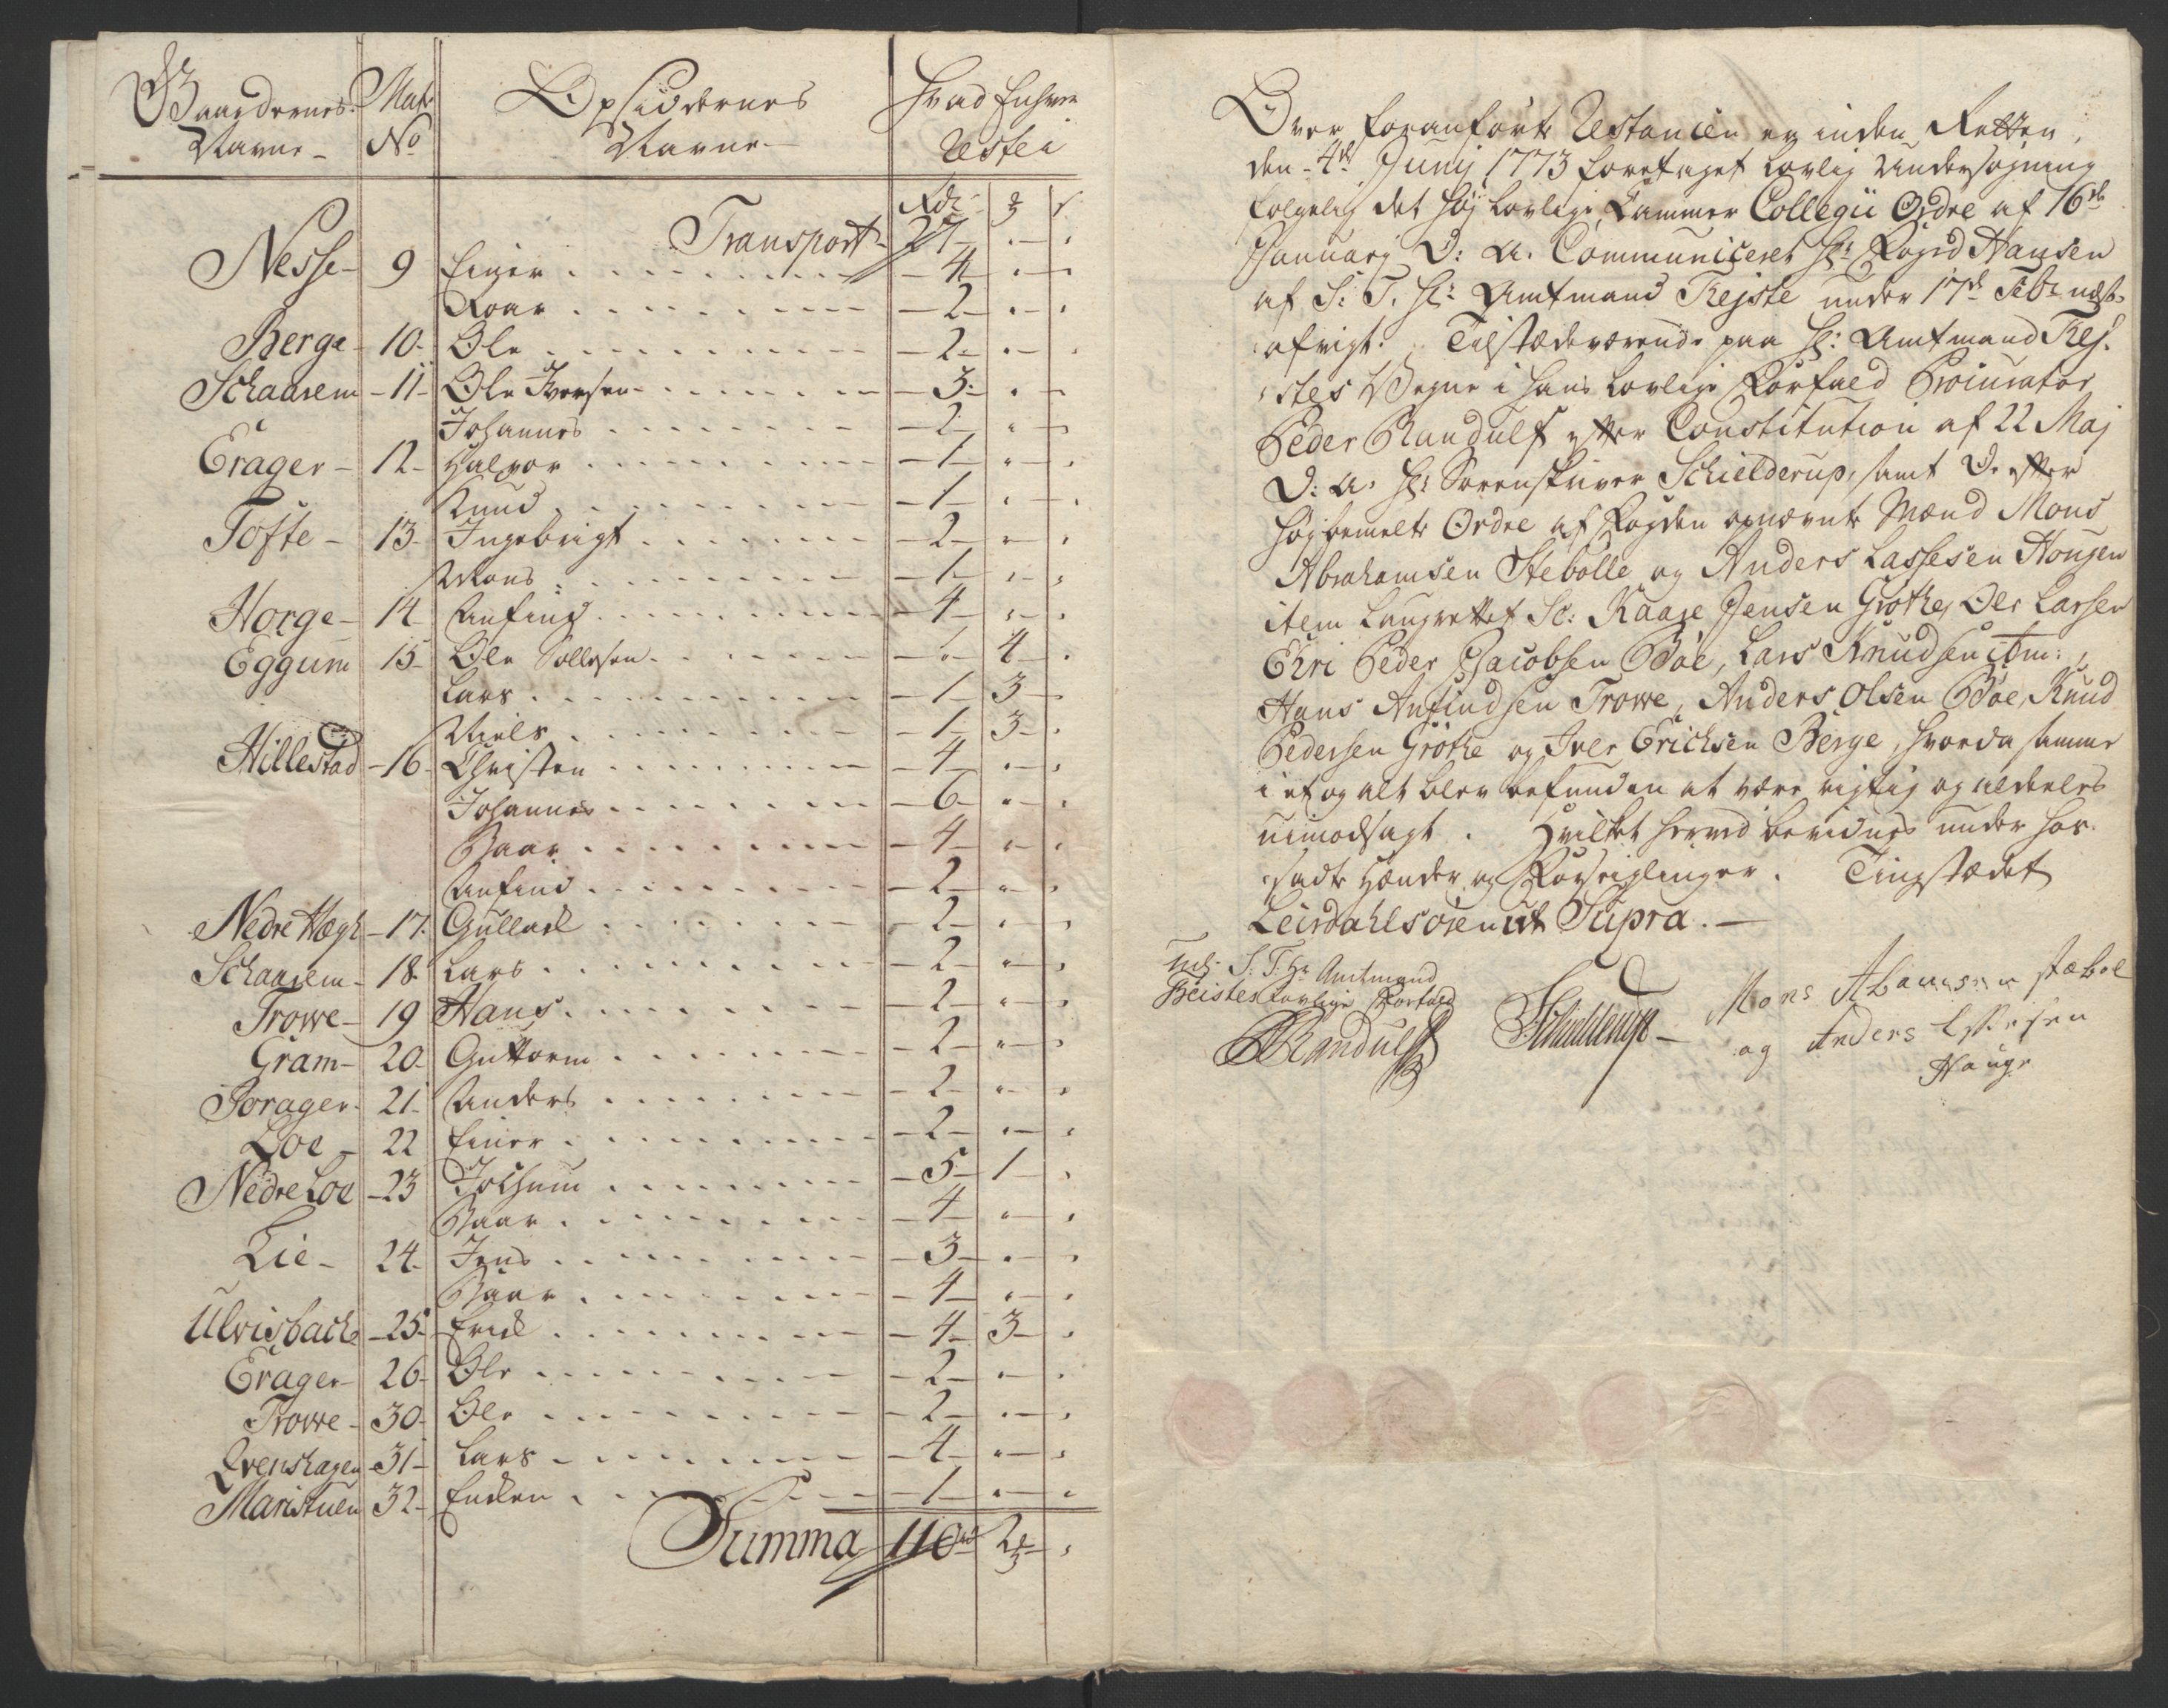 Gaardernes Mat: Opsiddernes Hvad Enhver
Navne - No Navne - Restei
Rdr ꝫ s
Transport - 27 - " - "
Nesse - 9 Einer - 4 - " - "
Roar - 2 - " - "
Berge - 10 - Ole - 2 - " - "
Schaarem - 11 - Ole Iversen - 3 - " - "
Johannes - 2 - " - "
Erager - 12 - Halvor - 1 - " - "
Knud - 1 - " - "
Tofte - 13 - Ingebrigt - 2 - " - "
Mons - 1 - " - "
Horge - 14 - Anfind - 4 - " - "
Eggum 15 - Ole Sollesen - " - 4 - "
Lars - 1 - 3 - "
Niels - 1 - 3 - "
Hillestad - 16 - Christen - 4 - " - "
Johannes - 6 - " - "
Baar - 4 - " - "
Anfind - 2 - " - "
Nedre Hægh - 17. Gullach - 2 - " - "
Schaarem - 18. Lars - 2 - " - "
Trowe - 19 Hans - 2 - " - "
Gram - 20 - Guttorm - 2 - " - "
Sorager - 21 - Anders - 2 - " - "
Loe - 22 Einer - 2 - " - "
Nedre Loe - 23 Jochum - 5 - 1 - "
Baar - 4 - " - "
Lie - 24 - Jens - 3 - " - "
Baar - 4 - " - "
Ulvisbach - 25 - Erich - 4 - 3 - "
Erager - 26 - Ole - 2 - " - "
Trowe - 30 - Ole - 2 - " - "
Qvenshagen - 31 - Lars - 4 - " - "
Maristuen 32 - Endre - 1 - " - "
Summa 110 rd 2 ꝫ - "
Over foranførte Restancer er inden Retten,
den 4de Junij 1773 foretaget lovlig Undersøgning
følgelig det høj lovlige Cammer Collegii Ordre af 16de
Januarj D: A. Communiceret Hr: Fogd Hansen
af S: T. Hr: Amtmand Fejste under 17de Febr næst-
afvigt. Tilstædeværende paa Hr: Amtmand Fej-
stes Vegne i hans lovlige Forfald Procurator
Peder Randulf efter Constitution af 22 Maj
D: A. Hr: Sorenskriver Schielderup, samt de efter
højbemelte Ordre af Fogden opnævnte Mænd Mons
Abrahamsen Stebolle og Anders Lassesen Hougen
item Laugrettet Sc: Kaare Jensen Grøthe, Ole Larsen
Eri Peder Jacobsen Bøe, Lars Knudsen ibm:
Hans Anfindsen Trowe, Anders Olsen Bøe, Knud
Pedersen Grøthe og Iver Erichsen Berge, hvorda samme
i et og alt blev befunden at være rigtig og aldeeles
uimodsagt. Hvilket herved bevidnes under hos-
satte Hænder og Forseiglinger. Tingstædet
Leirdahlsøren ut Supra. -
S. T. Hr Amtmand
Feistes lovlige Forfald
PRandulf
Schielderup -
Mons Abramsen stebol
og Anders Lassesen
Houge